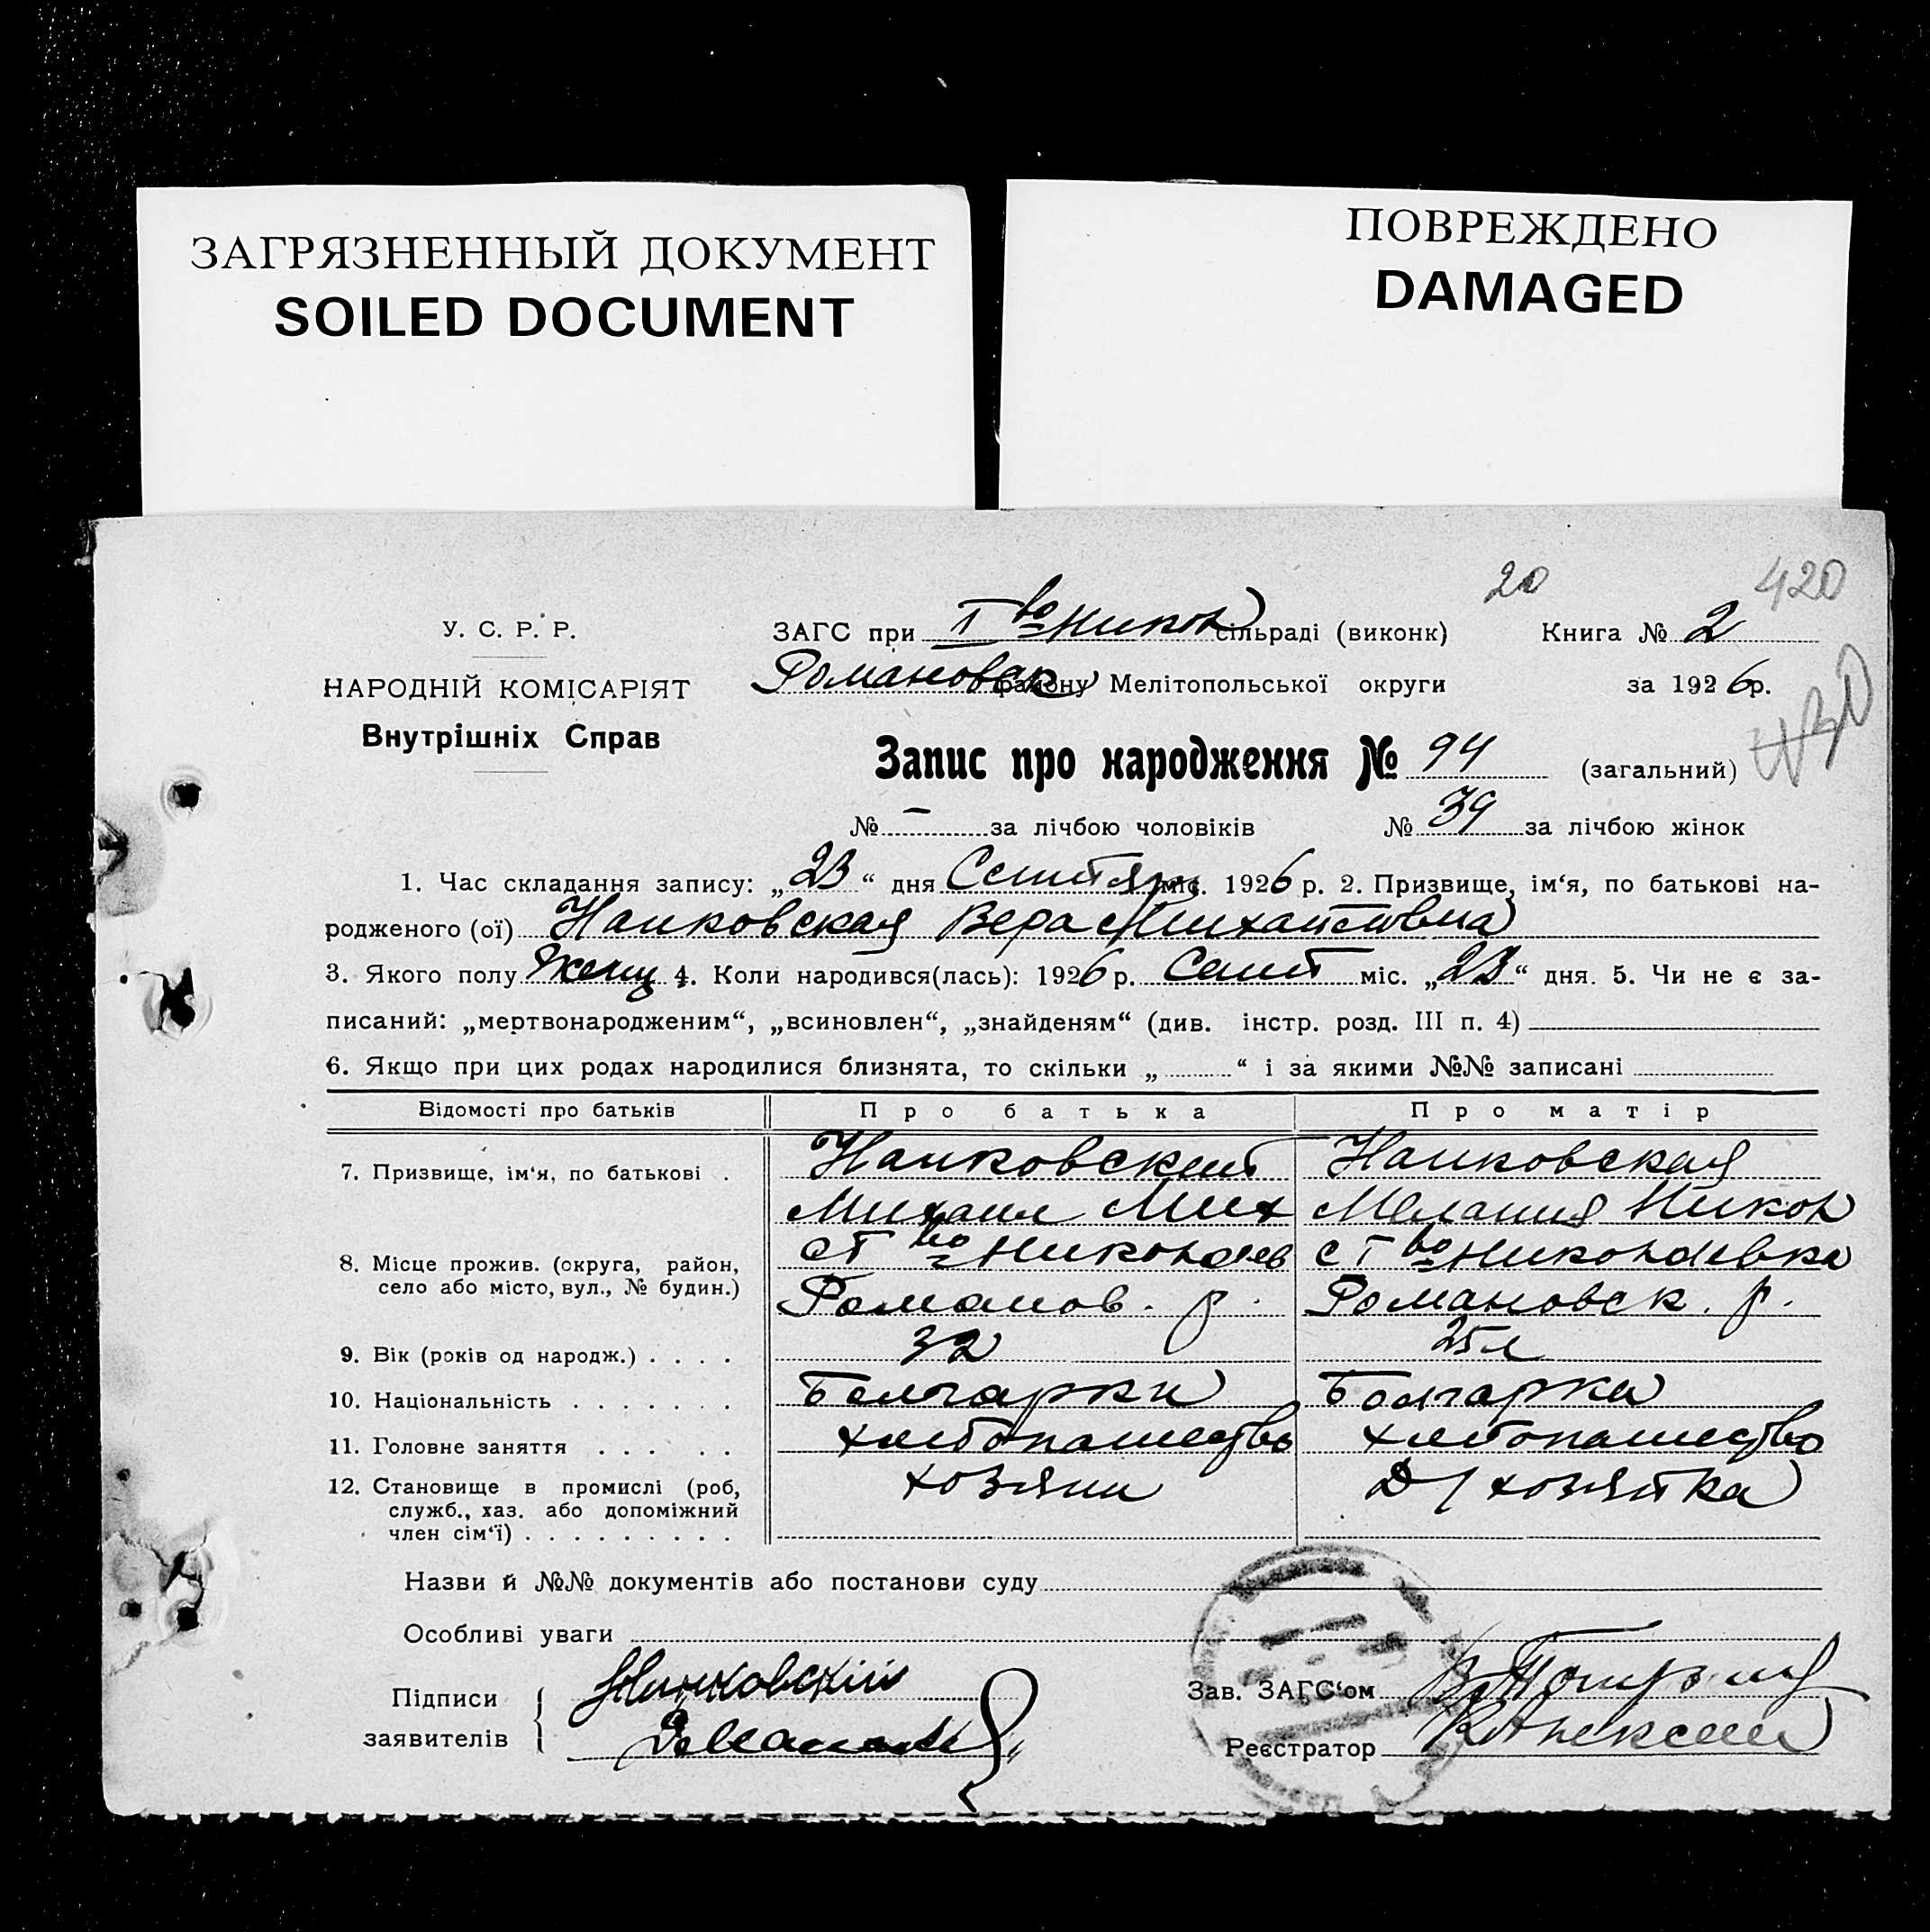 ЗАГРЯЗНЕННЫЙ ДОКУМЕНТ
SOILED DOCUMENT
ПОВРЕЖДЕНО
DAMAGED
20 420
У. С. Р. Р.
НАРОДНІЙ КОМІСАРІЯТ
Внутрішніх Справ
ЗАГС при І во Никол сільраді (виконк) Книга № 2
Романовск району Мелітопольської округи за 1926 р.
Запис про народження № 94 (загальний)
№ — за лічбою чоловіків № 39 за лічбою жінок
1. Час складання запису: „23“ дня Сентяр міс. 1926 р. 2. Призвище, ім‘я, по батькові на-
родженого (ої) Нанковская Вера Михайловна
3. Якого полу Женщ 4. Коли народився(лась): 1926 р. Сент міс. „23“ дня. 5. Чи не є за-
писаний: „мертвонародженим“, „всиновлен“, „знайденям“ (див. інстр. розд. III п. 4)
6. Якщо при цих родах народилися близнята, то скільки „ “ і за якими №№ записані
Відомості про батьків Про батька Про матір
7. Призвище, ім‘я, по батькові . Нанковский Нанковская
Михаил Мих Мелания Никол
8. Місце прожив. (округа, район, село або місто, вул., № будин.) с І во Николаев с І во Николаевка
Романов. р. Романовск. р.
9. Вік (років од народж.) . . . . 32 25 л
10. Національність . . . . . . . Болгарки Болгарка
11. Головне заняття . . . . . хлебопашество хлебопашество
12. Становище в промислі (роб, служб., хаз. або допоміжний член сім‘ї) . . . . . . . . . хозяин Д/хозяйка
Назви й №№ документів або постанови суду
Особливі уваги
Підписи заявителів Нанковский
Зав. ЗАГС‘ом
Реєстратор